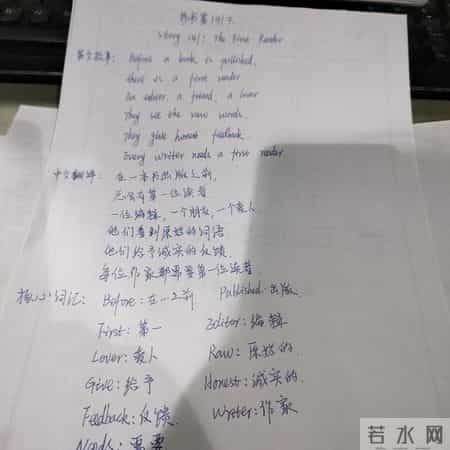 Story 141: The First Reader
英文故事: Before a book is published,
there is a first reader
An editor, a friend, a lover
They see the raw words.
They give honest feedback.
Every writer needs a first reader.
中文翻译: 在一本书出版之前,
总会有第一位读者
一位编辑,一个朋友,一个爱人
他们看到原始的词语
他们给予诚实的反馈.
每位作家都需要第一位读者.
核心词汇: Before: 在…之前 Published: 出版.
First: 第一 Editor: 编辑
Lover: 爱人 Raw: 原始的.
Give: 给予 Honest: 诚实的.
Feedback: 反馈 Writer: 作家
Needs: 需要
若水网